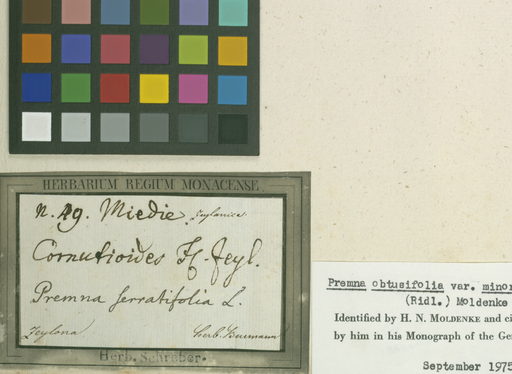 HERBARIUM REGIUM MONACENSE.
n. 29. Miedie. Zeylanica
Cornutioides Fl. Zeyl.
Premna serratifolia L.
Zeylona herb. Burmann
Herb. Schreber.
Premna obtusifolia var. minor
(Ridl.) Moldenke
Identified by H. N. MOLDENKE and ci
by him in his Monograph of the Ge
September 1975